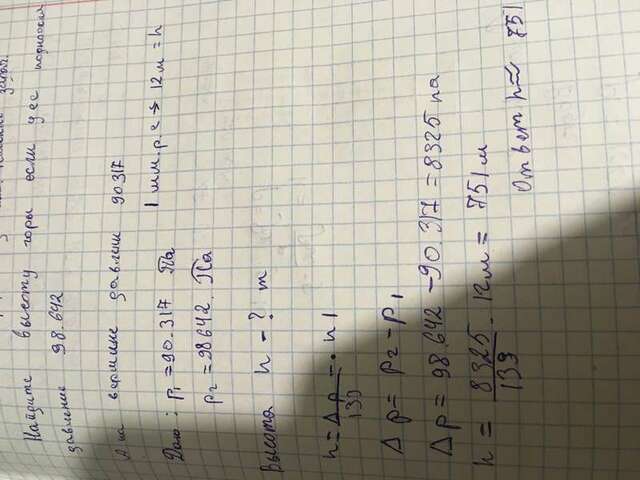 Найдите высоту горы если у ее подножия
давление 98.642
А на вершине давлени 90317
Дано: P₁ = 90.317 Па 1 мм.р.с → 12м = h
P₂ = 98642 Па
Высота h - ? m
h = Δp / 133 = · h1
Δp = P₂ - P₁
Δp = 98.642 - 90.317 = 8325 па
h = 8325 / 133 · 12м = 751м
Ответ h ≈ 751